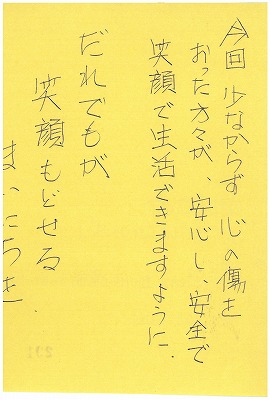 今回 少なからず 心の傷を
おった方々が、安心し、安全で
笑顔で生活できますように.
だれでもが、
笑顔もどせる
まいにちを.